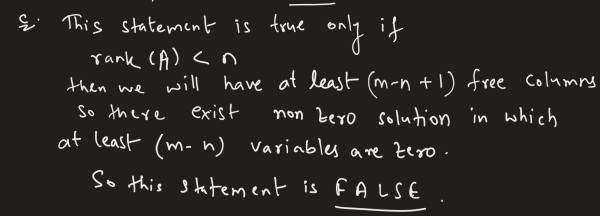 c. This statement is true only if
rank (A) < n
then we will have at least (m-n+1) free columns
so there exist non zero solution in which
at least (m-n) variables are zero.
So this statement is FALSE.